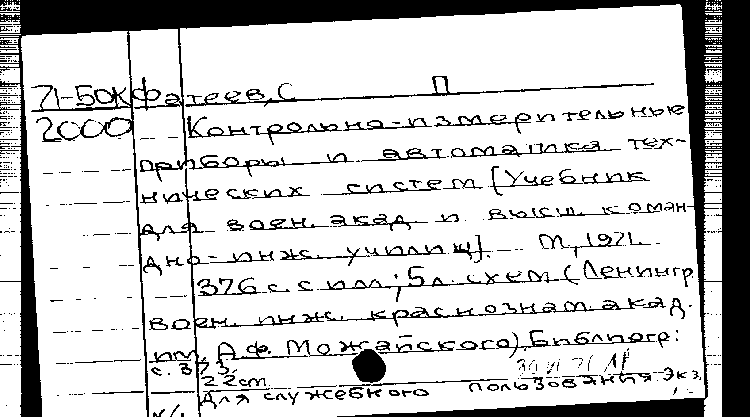 71-50К Фатеев, С П
2000 Контрольно-измерительные
приборы и автоматика тех-
нических систем [Учебник
для воен. акад и высш. коман-
дно-инж. училищ]. М, 1971.
376 с. с ил; 5 л. схем (Ленингр
воен. инж. краснознам. акад.
им. А.Ф. Можайского). Библиогр:
с. 373.
22 cm
Для служебного пользования. Экз.